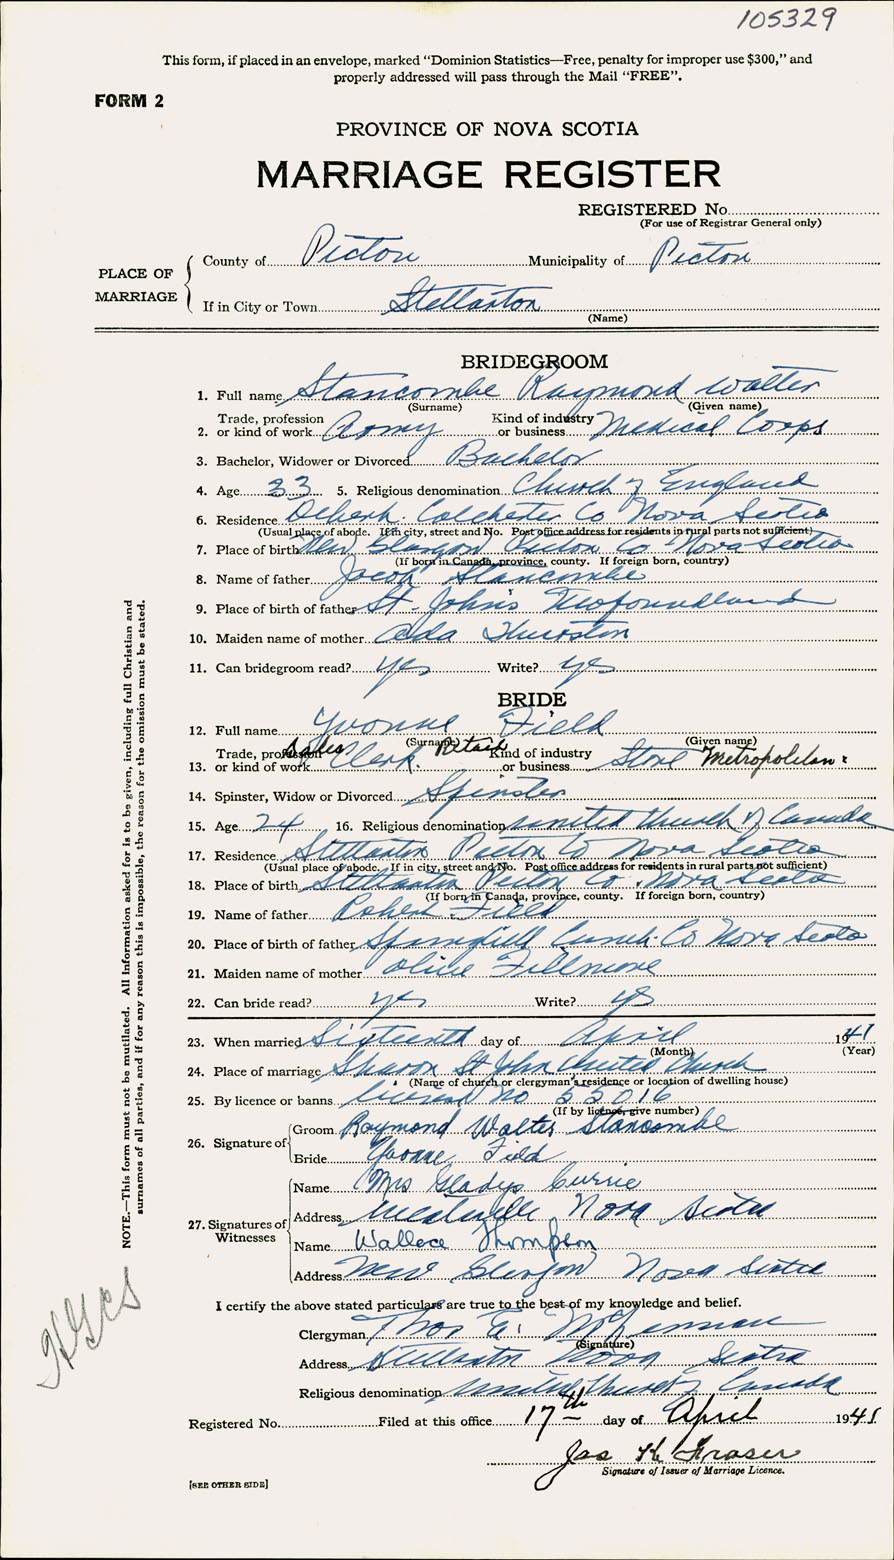 105329
This form, if placed in an envelope, marked "Dominion Statistics—Free, penalty for improper use $300," and
properly addressed will pass through the Mail "FREE".
FORM 2
PROVINCE OF NOVA SCOTIA
MARRIAGE REGISTER
REGISTERED No.
(For use of Registrar General only)
PLACE OF MARRIAGE
County of Pictou Municipality of Pictou
If in City or Town Stellarton
(Name)
BRIDEGROOM
1. Full name Stancombe Raymond Walter
(Surname) (Given name)
2. Trade, profession or kind of work Army Kind of industry or business Medical Corps
3. Bachelor, Widower or Divorced Bachelor
4. Age 33 5. Religious denomination Church of England
6. Residence Debert Colchester Co Nova Scotia
(Usual place of abode. If in city, street and No. Post office address for residents in rural parts not sufficient)
7. Place of birth New Glasgow Pictou Co Nova Scotia
(If born in Canada, province, county. If foreign born, country)
8. Name of father Jacob Stancombe
9. Place of birth of father St. John's Newfoundland
10. Maiden name of mother Ada Thurston
11. Can bridegroom read? yes Write? yes
BRIDE
12. Full name Yvonne Field
(Surname) (Given name)
13. Trade, profession or kind of work Sales Clerk Retail Kind of industry or business Store Metropolitan
14. Spinster, Widow or Divorced Spinster
15. Age 24 16. Religious denomination United Church of Canada
17. Residence Stellarton Pictou Co Nova Scotia
(Usual place of abode. If in city, street and No. Post office address for residents in rural parts not sufficient)
18. Place of birth Stellarton Pictou Co. Nova Scotia
(If born in Canada, province, county. If foreign born, country)
19. Name of father Robert Field
20. Place of birth of father Springhill Co Nova Scotia
21. Maiden name of mother Olive Fillmore
22. Can bride read? yes Write? yes
23. When married Sixteenth day of April 1941
(Month) (Year)
24. Place of marriage Sharon St John United Church
(Name of church or clergyman's residence or location of dwelling house)
25. By licence or banns License No 55016
(If by licence, give number)
26. Signature of
Groom Raymond Walter Stancombe
Bride Yvonne Field
27. Signatures of Witnesses
Name Mrs Gladys Currie
Address Nova Scotia
Name Wallace Thompson
Address New Glasgow Nova Scotia
I certify the above stated particulars are true to the best of my knowledge and belief.
Clergyman Thos
(Signature)
Address Stellarton Nova Scotia
Religious denomination United Church of Canada
Registered No. Filed at this office 17th day of April 1941
Jas K Fraser
Signature of Issuer of Marriage Licence.
[SEE OTHER SIDE]
NOTE.—This form must not be mutilated. All Information asked for is to be given, including full Christian and
surnames of all parties, and if for any reason this is impossible, the reason for the omission must be stated.